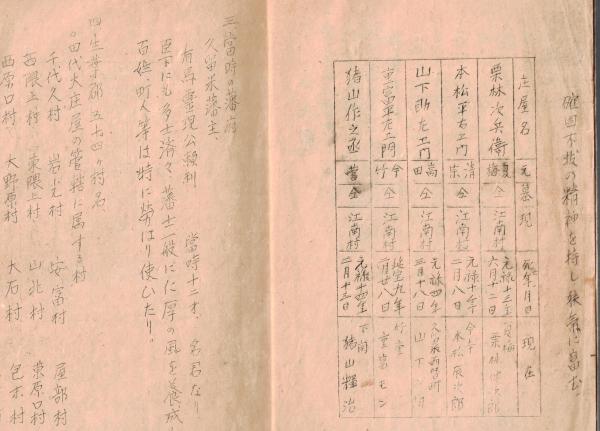 堅固不抜の精神を持し狭気に富む
庄屋名 元墓 現 死年月日 現在
栗林次兵衛 夏梅 仝 江南村 元禄十三年六月十二日 夏梅 栗林 次郎
本松平右エ門 清宗 仝 江南村 元禄十年二月八日 今竹 本松辰次郎
山下助左エ門 高田 仝 江南村 元禄四年三月十八日 久留米 町 山下
重富平左エ門 今竹 仝 江南村 延宝九年二月廿八日 竹重 重富モン
猪山作之丞 菅 仝 江南村 元禄十四年二月十三日 下南 猪山糧治
三、當時の藩府
久留米藩主、
有馬霊現公頼利 當時十二才、名君なり
臣下にも多士済々、藩士一般に仁厚の風を養成
百姓町人等は特に労はり使ひたり。
四、生葉郡五十四ヶ村名
田代大庄屋の管轄に属する村
千代久村 岩光村 安富村 屋部村
西隈上村 東隈上村 山北村 東原口村
西原口村 大野原村 大石村 包末村